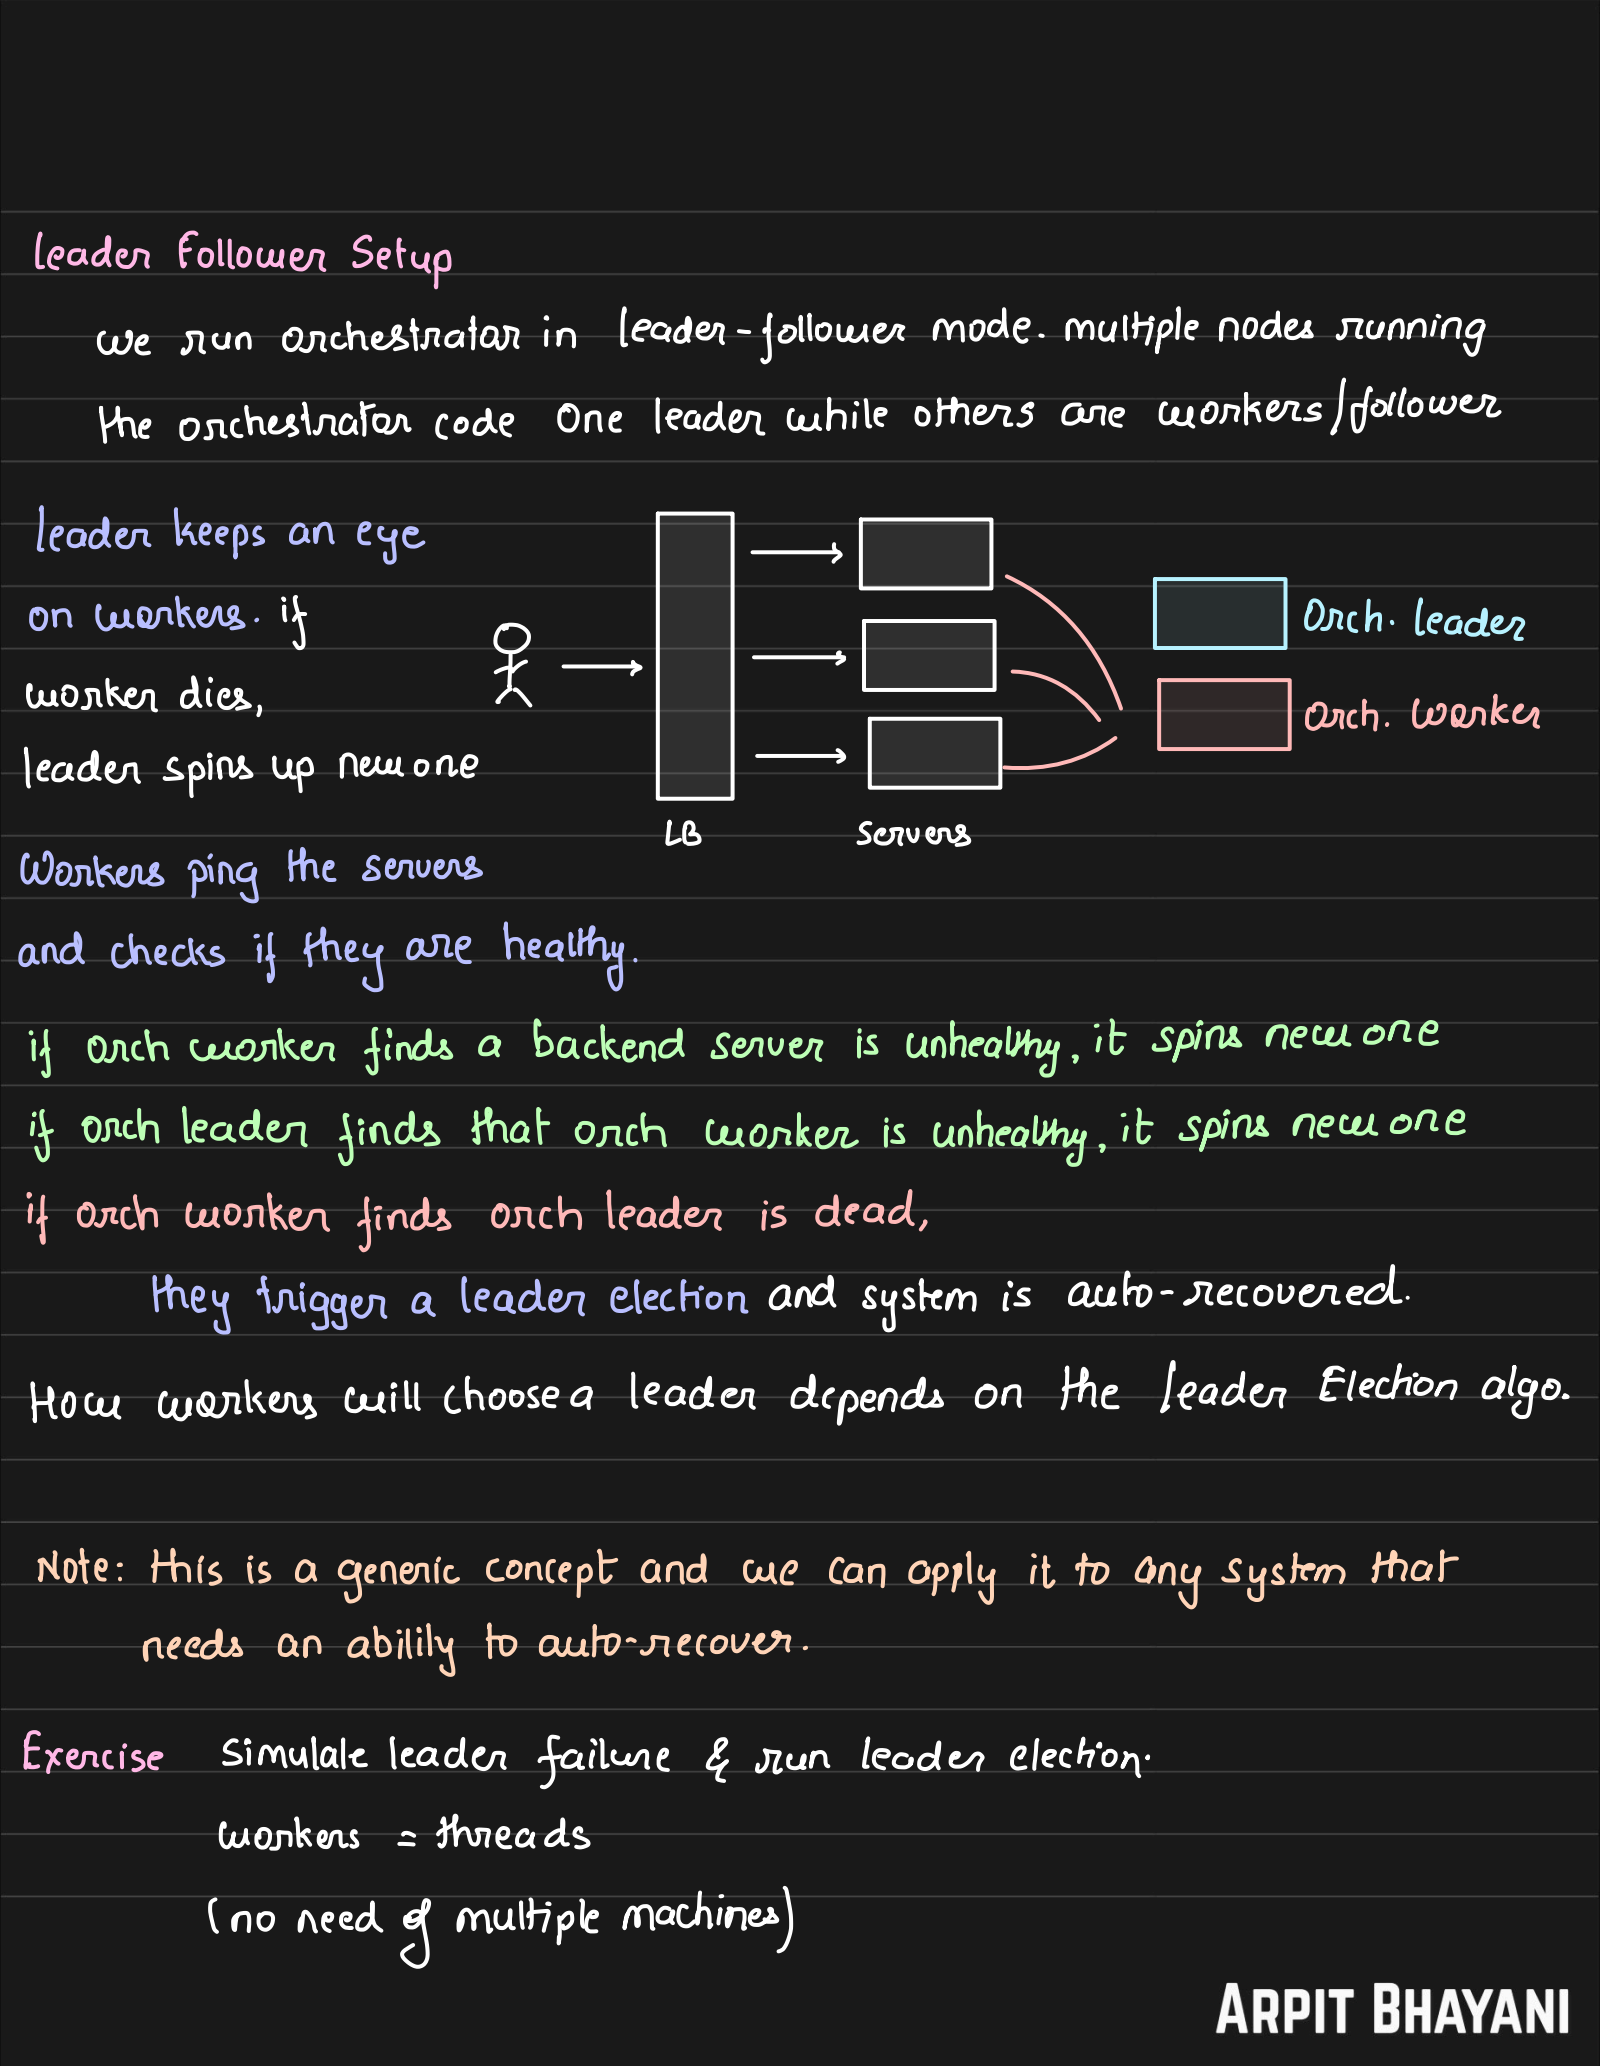 Leader Follower Setup
we run orchestrator in leader-follower mode. multiple nodes running
the orchestrator code One leader while others are workers/follower
leader keeps an eye
on workers. if
worker dies,
leader spins up new one
LB
Servers
Orch. leader
Orch. worker
Workers ping the servers
and checks if they are healthy.
if orch worker finds a backend server is unhealthy, it spins new one
if orch leader finds that orch worker is unhealthy, it spins new one
if orch worker finds orch leader is dead,
they trigger a leader election and system is auto-recovered.
How workers will choose a leader depends on the leader Election algo.
Note: this is a generic concept and we can apply it to any system that
needs an ability to auto-recover.
Exercise Simulate leader failure & run leader election.
workers = threads
(no need of multiple machines)
ARPIT BHAYANI